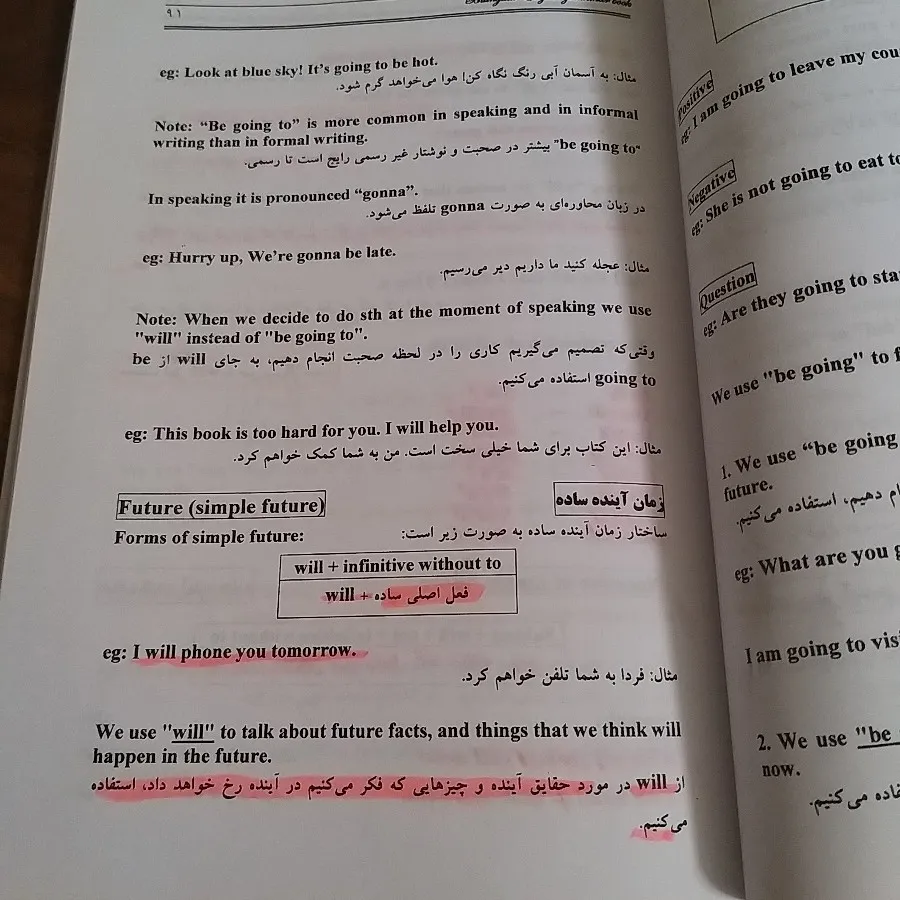 ۹۱
eg: Look at blue sky! It's going to be hot.
مثال: به آسمان آبی رنگ نگاه کن! هوا می‌خواهد گرم شود.
Note: “Be going to” is more common in speaking and in informal
writing than in formal writing.
"be going to" بیشتر در صحبت و نوشتار غیر رسمی رایج است تا رسمی.
In speaking it is pronounced “gonna”.
در زبان محاوره‌ای به صورت gonna تلفظ می‌شود.
eg: Hurry up, We're gonna be late.
مثال: عجله کنید ما داریم دیر می‌رسیم.
Note: When we decide to do sth at the moment of speaking we use
"will" instead of "be going to".
وقتی‌که تصمیم می‌گیریم کاری را در لحظه صحبت انجام دهیم، به جای will از be
going to استفاده می‌کنیم.
eg: This book is too hard for you. I will help you.
مثال: این کتاب برای شما خیلی سخت است. من به شما کمک خواهم کرد.
Future (simple future)
زمان آینده ساده
Forms of simple future:
ساختار زمان آینده ساده به صورت زیر است:
will + infinitive without to
فعل اصلی ساده + will
eg: I will phone you tomorrow.
مثال: فردا به شما تلفن خواهم کرد.
We use "will" to talk about future facts, and things that we think will
happen in the future.
از will در مورد حقایق آینده و چیزهایی که فکر می‌کنیم در آینده رخ خواهد داد، استفاده
می‌کنیم.
Positive
eg: I am going to leave my
Negative
eg: She is not going to eat
Question
eg: Are they going to
We use "be going" to
1. We use “be going
future.
دهیم، استفاده می‌کنیم.
eg: What are you
I am going to
2. We use "be
now.
می‌کنیم.